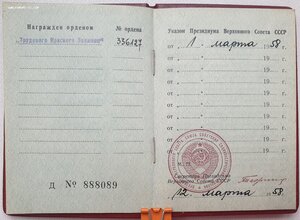 Награжден орденом
№ ордена
"Трудового Красного Знамени"
336127
Д № 888089
Указ Президиума Верховного Совета СССР
от „ 1. " марта 19 58 г.
от „ " 19 г.
от „ " 19 г.
от „ " 19 г.
от „ " 19 г.
от „ " 19
от „ " 19
Секретарь Президиума
Верховного Совета СССР
„ 12. " марта 19 58 г.